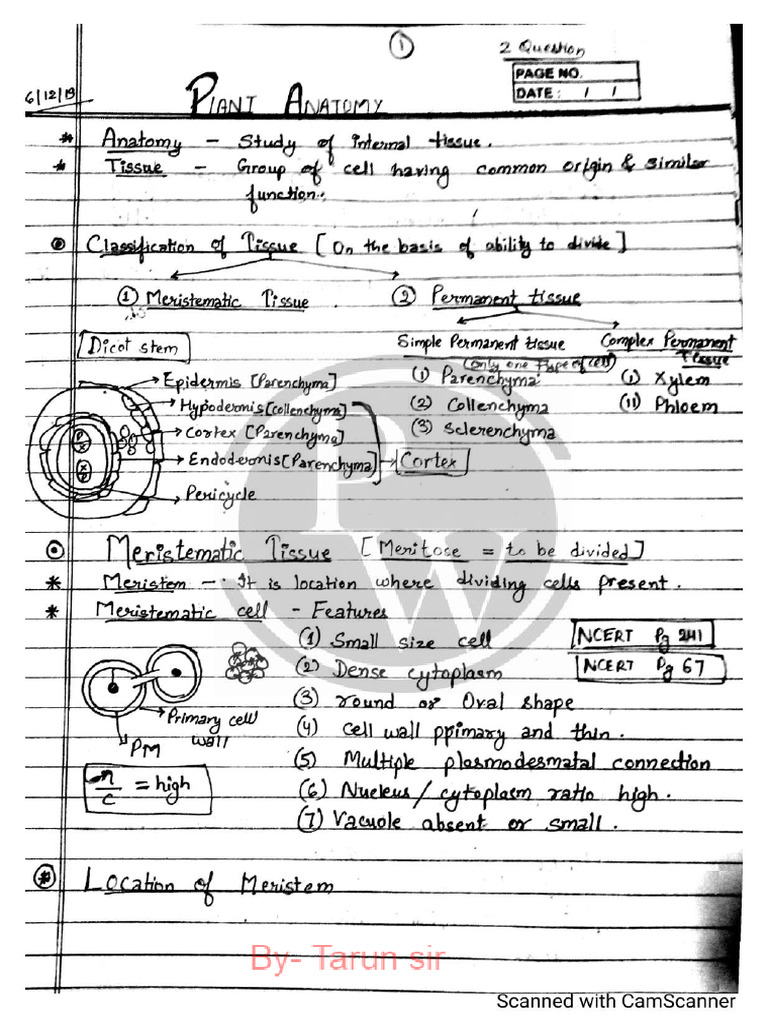 1
2 Question
PAGE NO.
DATE: / /
6/12/19
PLANT ANATOMY
* Anatomy - Study of internal tissue.
* Tissue - Group of cell having common origin & similar
function.
Classification of Tissue [On the basis of ability to divide]
(1) Meristematic Tissue. (2) Permanent tissue
Dicot stem
Simple Permanent tissue Complex Permanent
Tissue
(Only one type of cell)
Epidermis [Parenchyma]
(1) Parenchyma (i) Xylem
Hypodermis [collenchyma]
(2) Collenchyma (ii) Phloem
Cortex [Parenchyma]
(3) Sclerenchyma
Endodermis [Parenchyma] → Cortex
P
X
X
P
Pericycle
PW
Meristematic Tissue [Meritose = to be divided]
* Meristem - It is location where dividing cells present.
* Meristematic cell - Features
(1) Small size cell
NCERT Pg 241
(2) Dense cytoplasm
NCERT Pg 67
(3) round or Oval shape
Primary cell
wall
(4) cell wall ppimary and thin.
PM
(5) Multiple plasmodesmatal connection
n/c = high
(6) Nucleus/cytoplasm ratio high.
(7) Vacuole absent or small.
* Location of Meristem
By- Tarun sir
Scanned with CamScanner